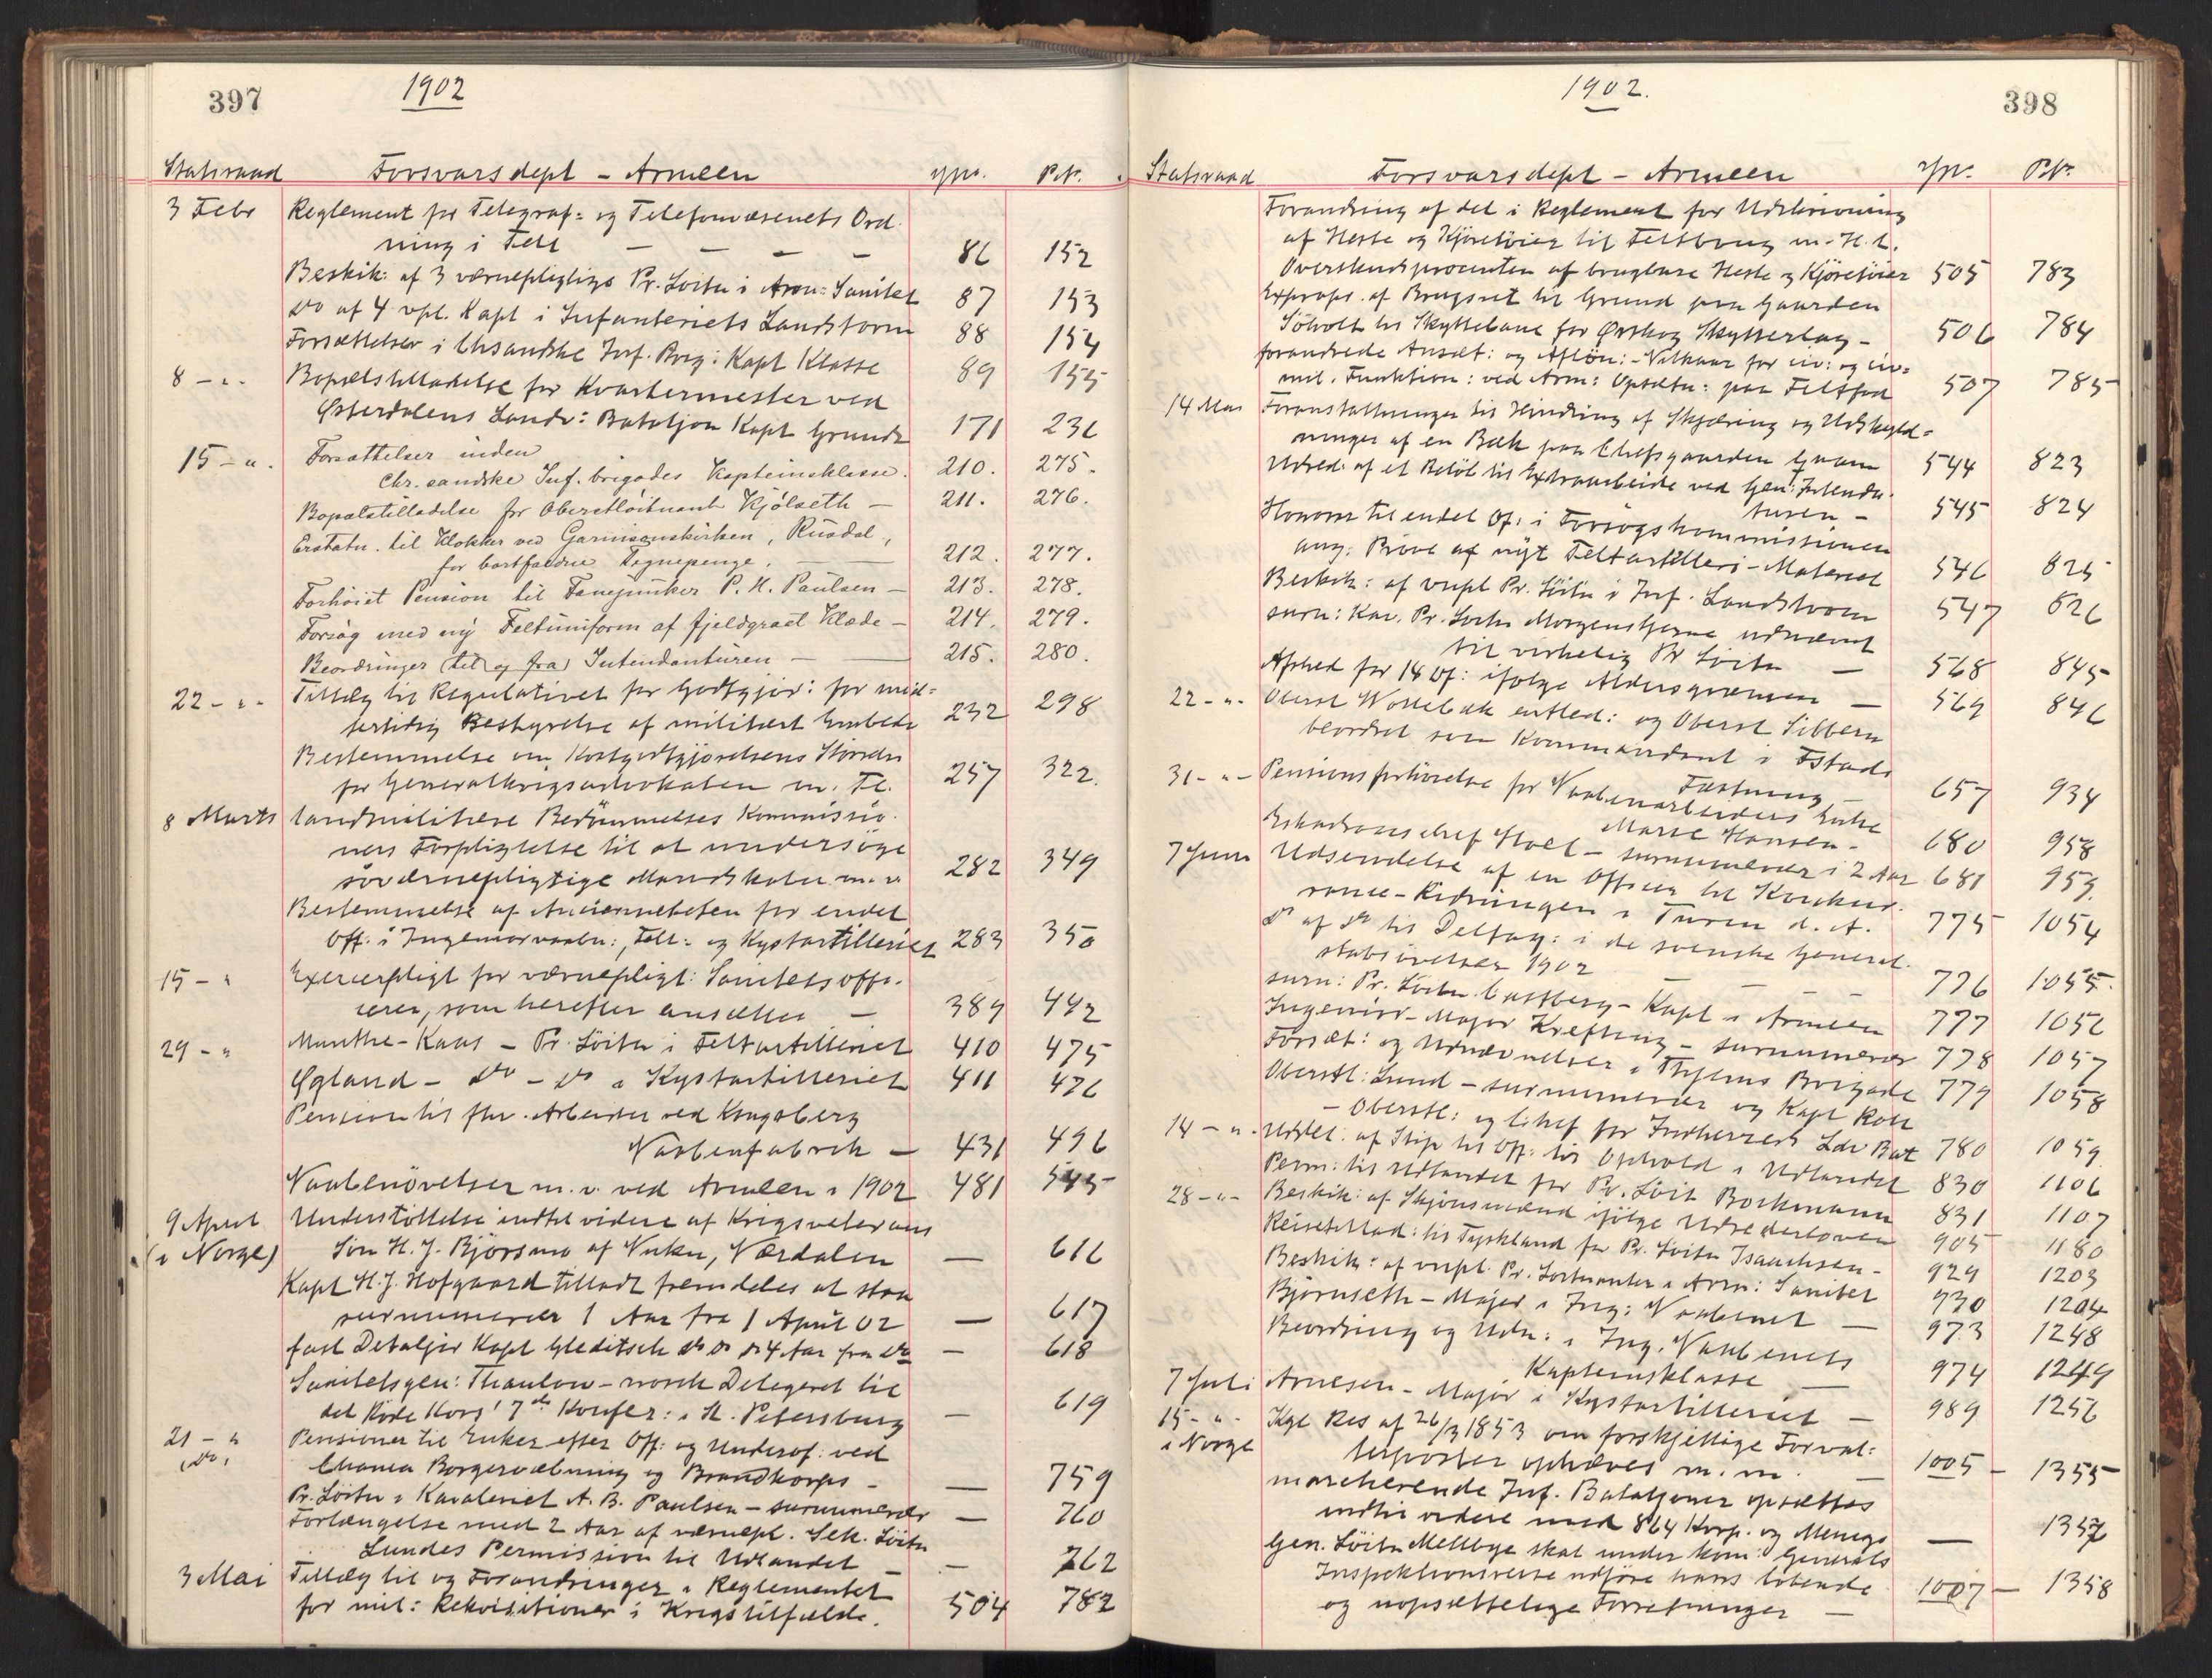 397
1902
Statsraad Forsvarsdept - Armeen Jnr. P.N.
3 Febr Reglement for Telegraf= og Telefonvæsenets Ord
ning i Felt — — — 86 152
Beskik: af 3 værnepligtige Pr. Löitn i Arm: Sanitet 87 153
Do af 4 vpl. Kapt i Infanteriets Landstorm 88 154
Forsættelser i Chrsandske Inf. Brig: Kapt Klasse 89 155
8 - " - Bopælstilladelse for Kvartermester ved
Østerdalens Landv: Bataljon Kapt Grundt 171 236
15 - " - Forsættelser inden
Chr.sandske Inf. brigades Kapteinsklasse. 210. 275.
Bopælstilladelse for Oberstlöitnant Kjölseth — 211. 276.
Erstatn. til Klokker ved Garnisonskirken, Rusdal,
for bortfaldne Tegnepenge. — 212. 277.
Forhöiet Pension til Fanejunker P. H. Paulsen — 213. 278.
Forsög med ny Feltuniform af fjeldgraat Klæde — 214. 279.
Beordringer (til og fra) Intendanturen — 215. 280.
22 - " - Tillæg til Regulativet for Godtgjör: for mid=
lertidig Bestyrelse af militært Embede 232 298
Bestemmelse om Kostgodtgjörelsens Störrelse
for Generalkrigsadvokaten m. Fl. 257 322.
8 Marts Landmilitære Bedömmelses Kommissio
ners Forpligtelse til at undersöge
söværnepligtige Mandskaber m. v 282 349
Bestemmelse af Ancienniteten for endel
Off. i Ingeniörvaabn:, Felt= og Kystartilleriet 283 350
15 - " Exercerpligt for værnepligt: Sanitetsoffi-
cerer, som herefter ansættes — 389 442
29 - " Munthe-Kaas - Pr. Löitn i Feltartilleriet 410 475
Øgland - Do - Do i Kystartilleriet 411 476
Pension til fhv. Arbeider ved Kongsberg
Vaabenfabrik — 431 496
Vaabenövelser m. v. ved Armeen i 1902 481 545
9 April Understöttelse indtil videre af Krigsveterans
(i Norge) Sön H. J. Björsmo af Vuku, Værdalen — 616
Kapt H. J. Hofgaard tilladt fremdeles at staa
surnumerær 1 Aar fra 1 April 02 — 617
fast Detaljör Kapt Gleditsch do do do 4 Aar fra do — 618
Sanitetsgen: Thaulow - norsk Delegeret til
det Röde Kors' 7de Konfer: i St. Petersburg — 619
21 - " Pensioner til Enker efter Off: og Underof: ved
(do) Chania Borgervæbning og Brandkorps — 759
Pr. Löitn i Kavaleriet A. B. Paulsen - surnumerær — 760
Forlængelse med 2 Aar af værnepl. Sek. Löitn
Lundes Permission til Udlandet — 762
3 Mai Tillæg til og Forandringer i Reglementet
for mil: Rekvisitioner i Krigstilfælde. 504 782
1902.
398
Statsraad Forsvarsdept - Armeen Jnr. P.N.
Forandring af det i Reglement for Udskrivning
af Heste og Kjöretöier til Feltbrug m. H. t.
Overskudsprocenten af brugbare Heste og Kjöretöier 505 783
Exprop. af Brugsret til Grund paa Gaarden
Söholt til Skyttebane for Ørskog Skytterlag — 506 784
forandrede Ansæt: og Aflön:-Vilkaar for civ: og civ=
mil. Funktion: ved Arm: Opsætn: paa Feltfod 507 785
14 Mai Foranstaltninger til Hindring af Skjæring og Udskyld=
ninger af en Bæk paa Chefsgaarden Gnam 544 823
Udred: af et Belöb til Extraarbeide ved Gen: Intenda-
turen — 545 824
Honorar til endel Of: i Forsögskommissionen
ang: Pröve af nyt Feltartilleri-Materiel 546 825
Beskik: af vnpl Pr. Löitn i Inf. Landstorm 547 826
surn: Kav. Pr. Löitn Morgenstjerne udnævnt
til virkelig Pr Löitn — 568 845
Afsked for 14 Of: ifölge Aldersgrænsen — 569 846
22 - " - Oberst Wollebæk entled: og Oberst Sibbern
beordret som Kommandant i Fstads
Fæstning — 657 934
31 - " - Pensionsforhöielse for Vaabenarbeiders Enke
Marie Hansen — 680 958
Eskadronschef Hoel - surnumerær i 2 Aar 681 959
7 Juni Udsendelse af en Officer til Konkur-
rance-Ridningen i Turin d. A. 775 1054
Do af do til Deltag: i de svenske General-
stabsövelser 1902 — — — 776 1055.
surn: Pr. Löitn Castberg - Kapt i Armeen 777 1056
Ingeniör-Major Krefting - surnumerær 778 1057
Forsæt: og Udnævnelser i Thjems Brigade 779 1058
Oberstl: Lund - surnumerær og Kapt Roll
- Oberstl: og Chef for Indherreds Ldv Bat 780 1059
14 - " - Uddel: af Stip til Off: til Ophold i Udlandet 830 1106
Perm: til Udlandet for Pr. Löit Bockmann 831 1107
28 - " - Beskik: af Skjönsmænd ifölge Udrederloven 905 1180
Reisetillad: til Tyskland for Pr. Löitn Isaachsen — 929 1203
Beskik: af vnpl Pr. Löitnanter i Arm: Sanitet 930 1204
Björnseth - Major i Ing: Vaabenet — 973 1248
Beordring og Udn: i Ing. Vaabenets
Kapteinsklasse — 974 1249
7 Juli Arnesen - Major i Kystartilleriet — 989 1256
15 - " - Kgl Res af 26/3 1853 om forskjellige Forval:
i Norge terposter ophæves m. m. — 1005 - 1355
marcherende Inf. Bataljoner opsættes
indtil videre med 864 Korp. og Menige — 1357
Gen. Löitn Mellbye skal under kom: Generals
Inspektionsreise udföre hans löbende
og uopsættelige Forretninger — 1007 - 1358